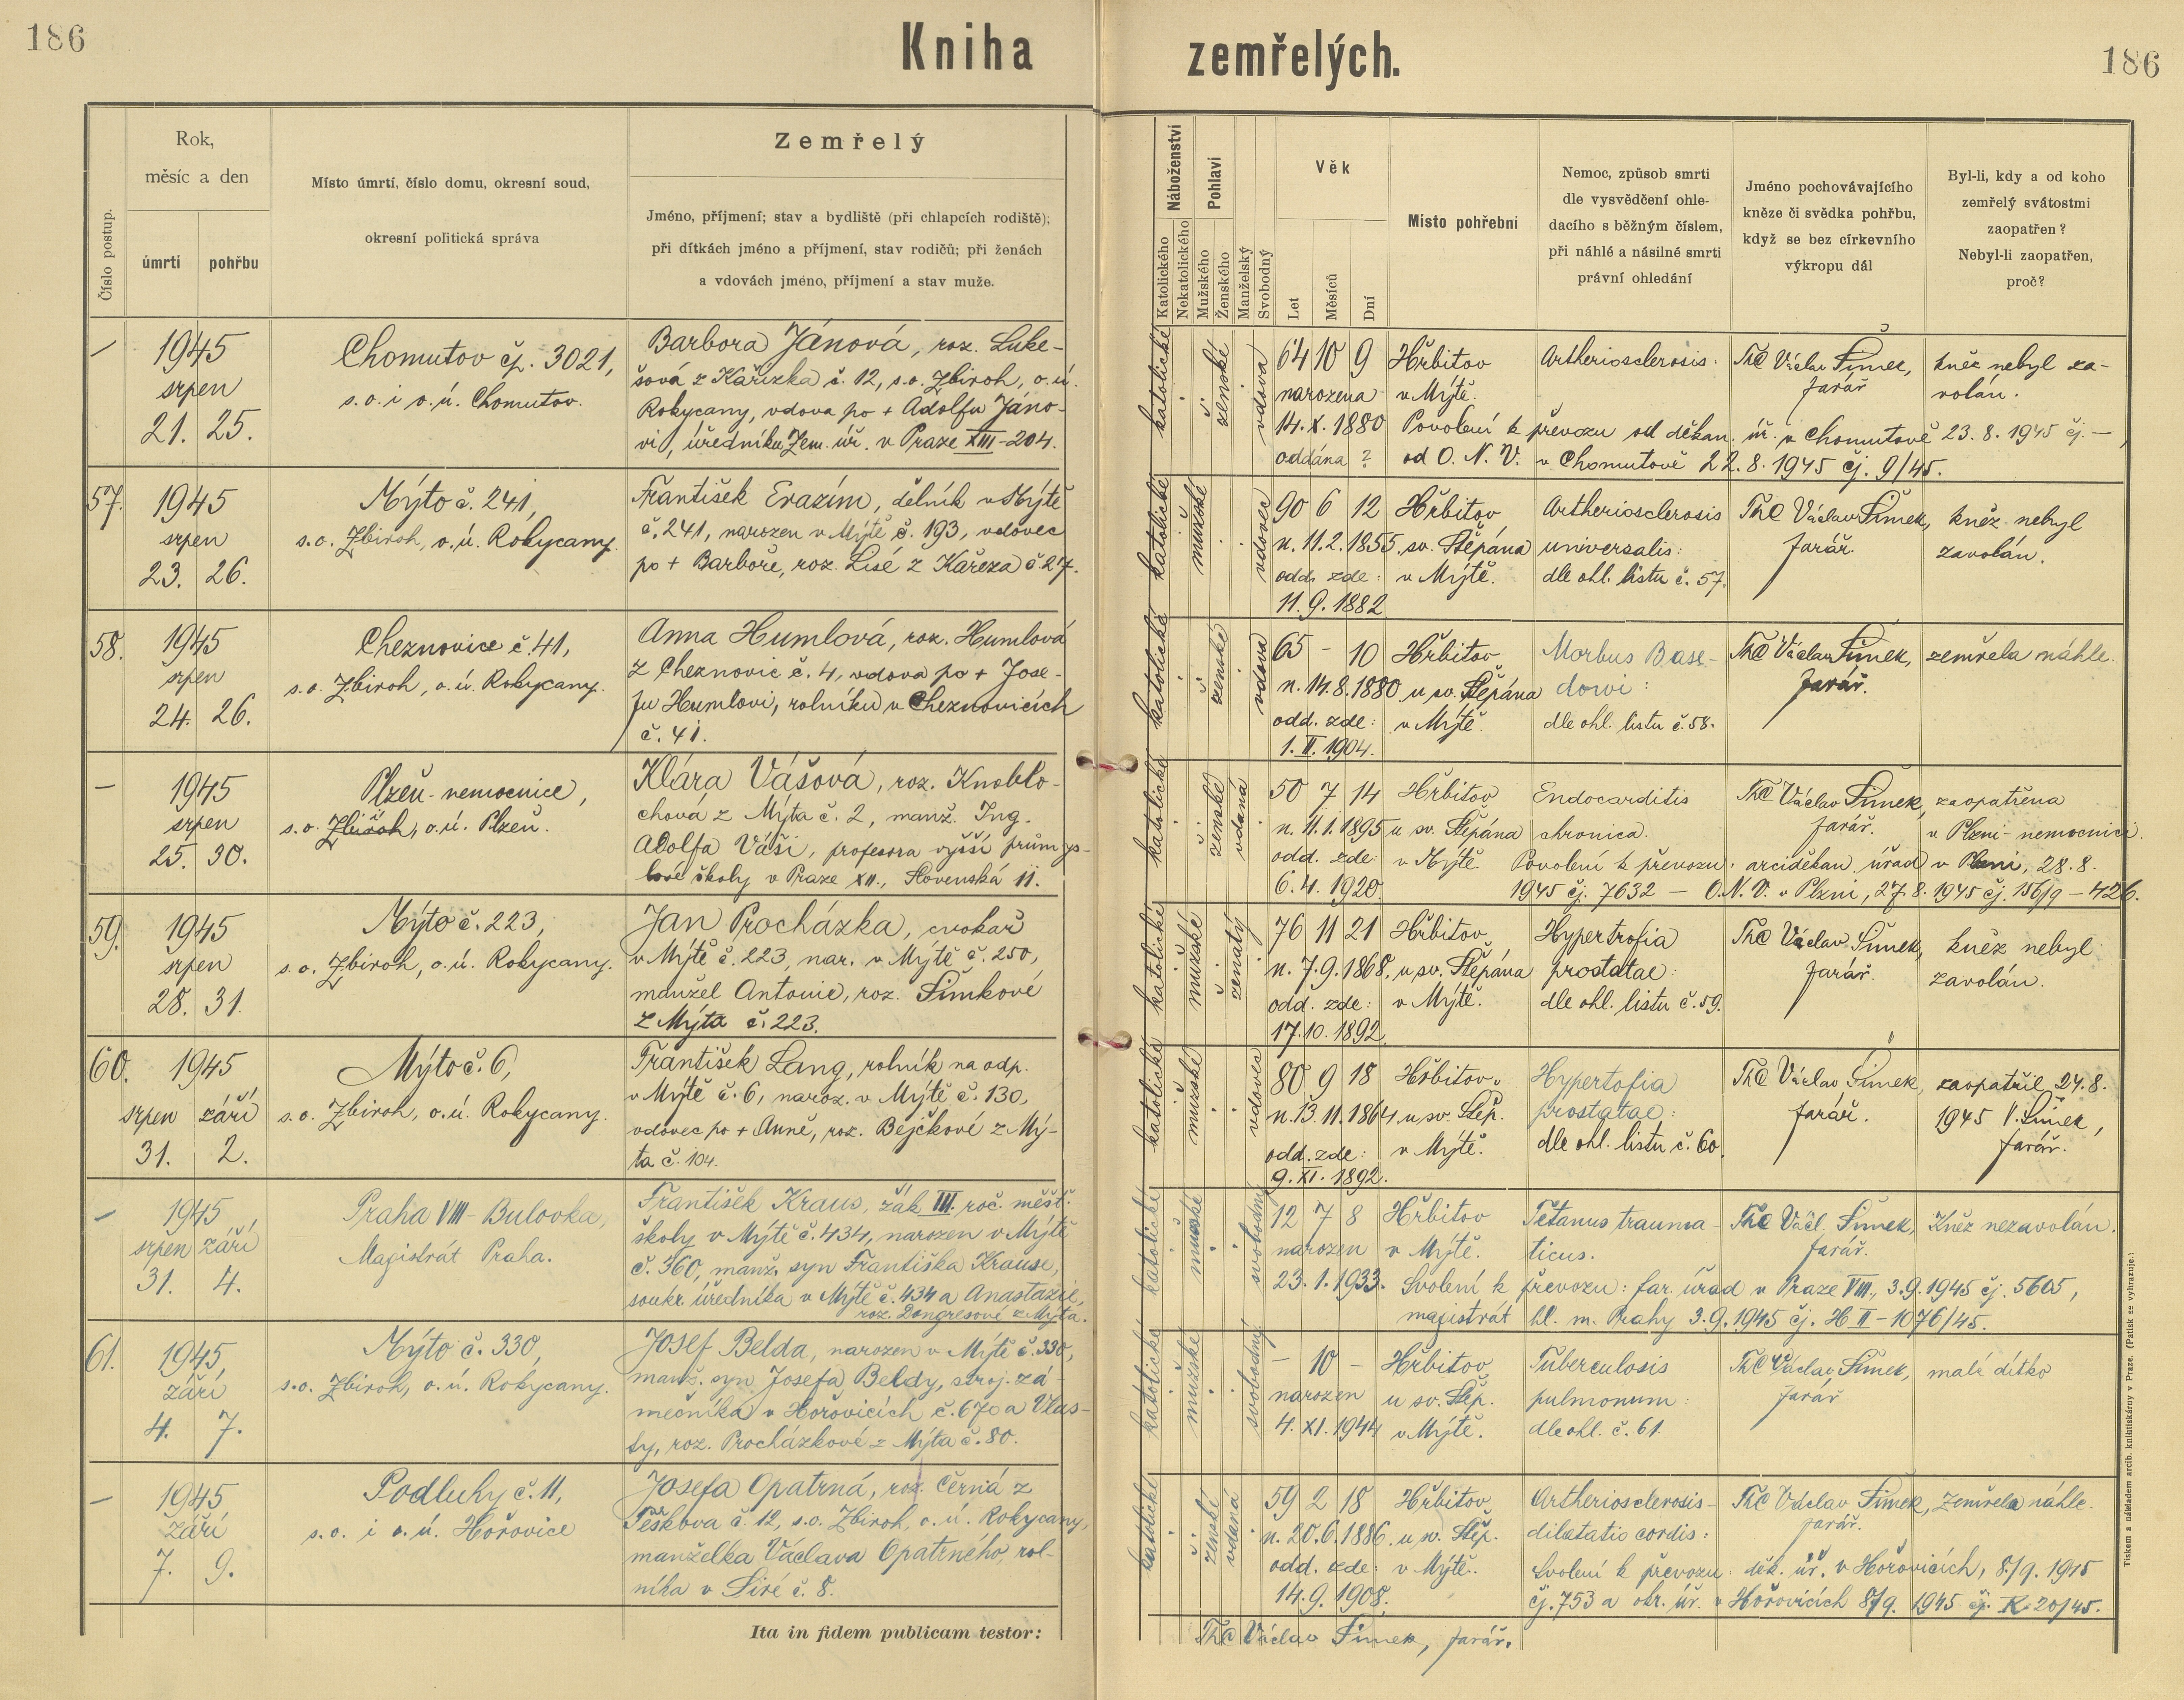 186
Kniha zemřelých.
186
Číslo postup.
Rok,
měsíc a den
úmrtí
pohřbu
Místo úmrtí, číslo domu, okresní soud,
okresní politická správa
Zemřelý
Jméno, příjmení; stav a bydliště (při chlapcích rodiště);
při dítkách jméno a příjmení, stav rodičů; při ženách
a vdovách jméno, příjmení a stav muže.
Náboženství
Katolického
Nekatolického
Pohlaví
Mužského
Ženského
Manželský
Svobodný
Věk
Let
Měsíců
Dní
Místo pohřební
Nemoc, způsob smrti
dle vysvědčení ohle-
dacího s běžným číslem,
při náhlé a násilné smrti
právní ohledání
Jméno pochovávajícího
kněze či svědka pohřbu,
když se bez církevního
výkropu dál
Byl-li, kdy a od koho
zemřelý svátostmi
zaopatřen?
Nebyl-li zaopatřen,
proč?
—
1945
srpen
21. 25.
Chomutov čp. 3021,
s.o. i o.ú. Chomutov.
Barbora Jánová, roz. Luke-
šová z Kařízka č. 12, s.o. Zbiroh, o.ú.
Rokycany, vdova po + Adolfu Jáno-
vi, úředníku Zem. úř. v Praze XIII-204.
katolické
ženské
vdova
64 10 9
narozena
14. X. 1880
oddána ?
Hřbitov
v Mýtě.
Artheriosclerosis.
ThC Václav Šimek,
farář
kněz nebyl za-
volán.
Povolení k převozu od děkan. úř. v Chomutově 23. 8. 1945 čj. —,
od O. N. V. v Chomutově 22. 8. 1945 čj. 9/45.
57.
1945
srpen
23. 26.
Mýto č. 241,
s.o. Zbiroh, o.ú. Rokycany.
František Erazím, dělník v Mýtě
č. 241, narozen v Mýtě č. 193, vdovec
po + Barboře, roz. Lisé z Kařeza č. 27.
katolické
mužské
vdovec
90 6 12
n. 11. 2. 1855.
odd. zde:
11. 9. 1882
Hřbitov
sv. Štěpána
v Mýtě.
Artheriosclerosis
universalis:
dle ohl. listu č. 57.
ThC Václav Šimek,
farář.
kněz nebyl
zavolán.
58.
1945
srpen
24. 26.
Cheznovice č. 41,
s.o. Zbiroh, o.ú. Rokycany.
Anna Humlová, roz. Humlová
z Cheznovic č. 4, vdova po + Jose-
fu Humlovi, rolníku v Cheznovicích
č. 41.
katolické
ženské
vdova
65 - 10
n. 14. 8. 1880
odd. zde:
1. II. 1904.
Hřbitov
u sv. Štěpána
v Mýtě.
Morbus Base-
dowi:
dle ohl. listu č. 58.
ThC Václav Šimek,
farář.
zemřela náhle.
—
1945
srpen
25. 30.
Plzeň - nemocnice,
s.o. Zbiroh, o.ú. Plzeň.
Klára Vášová, roz. Knoblo-
chová z Mýta č. 2, manž. Ing.
Adolfa Váši, profesora vyšší průmys-
lové školy v Praze XII., Slovenská 11.
katolické
ženské
vdaná
50 7 14
n. 11. 1. 1895
odd. zde:
6. 4. 1920.
Hřbitov
u sv. Štěpána
v Mýtě.
Endocarditis
chronica.
ThC Václav Šimek,
farář.
zaopatřena
v Plzni - nemocnici.
Povolení k převozu: arciděkan. úřad v Plzni, 28. 8.
1945 čj. 7632 — O. N. V. v Plzni, 27. 8. 1945 čj. 156/9 - 426.
59.
1945
srpen
28. 31.
Mýto č. 223,
s.o. Zbiroh, o.ú. Rokycany.
Jan Procházka, cvokař
v Mýtě č. 223, nar. v Mýtě č. 250,
manžel Antonie, roz. Šimkové
z Mýta č. 223.
katolické
mužské
ženatý
76 11 21
n. 7. 9. 1868.
odd. zde:
17. 10. 1892.
Hřbitov
u sv. Štěpána
v Mýtě.
Hypertrofia
prostatae:
dle ohl. listu č. 59.
ThC Václav Šimek,
farář.
kněz nebyl
zavolán.
60.
1945
srpen září
31. 2.
Mýto č. 6,
s.o. Zbiroh, o.ú. Rokycany.
František Lang, rolník na odp.
v Mýtě č. 6, naroz. v Mýtě č. 130,
vdovec po + Anně, roz. Bejčkové z Mý-
ta č. 104.
katolické
mužské
vdovec
80 9 18
n. 13. 11. 1864
odd. zde:
9. XI. 1892.
Hřbitov
u sv. Štěp.
v Mýtě.
Hypertofia
prostatae:
dle ohl. listu č. 60
ThC Václav Šimek,
farář.
zaopatřil 24. 8.
1945 V. Šimek,
farář.
—
1945
srpen září
31. 4.
Praha VIII - Bulovka,
Magistrát Praha.
František Kraus, žák III. roč. měšť.
školy v Mýtě č. 434, narozen v Mýtě
č. 360, manž. syn Františka Krause,
soukr. úředníka v Mýtě č. 434 a Anastazie,
roz. Dongresové z Mýta.
katolické
mužské
svobodný
12 7 8
narozen
23. 1. 1933.
Hřbitov
v Mýtě.
Tetanus trauma-
ticus.
ThC Václ. Šimek,
farář.
Kněz nezavolán.
Svolení k převozu: far. úřad v Praze VIII., 3. 9. 1945 čj. 5605,
magistrát hl. m. Prahy 3. 9. 1945 čj. H II - 1076/45.
61.
1945
září
4. 7.
Mýto č. 330,
s.o. Zbiroh, o.ú. Rokycany.
Josef Belda, narozen v Mýtě č. 330,
manž. syn Josefa Beldy, stroj. zá-
mečníka v Hořovicích č. 670 a Vlas-
ty, roz. Procházkové z Mýta č. 80.
katolické
mužské
svobodný
- 10 -
narozen
4. XI. 1944
Hřbitov
u sv. Štěp.
v Mýtě.
Tuberculosis
pulmonum:
dle ohl. č. 61.
ThC Václav Šimek,
farář
malé dítko
—
1945
září
7. 9.
Podluhy č. 11,
s.o. i o.ú. Hořovice
Josefa Opatrná, roz. Černá z
Těškova č. 12, s.o. Zbiroh, o.ú. Rokycany,
manželka Václava Opatrného, rol-
níka v Siré č. 8.
katolické
ženské
vdaná
59 2 18
n. 20. 6. 1886.
odd. zde:
14. 9. 1908.
Hřbitov
u sv. Štěp.
v Mýtě.
Artheriosclerosis -
dilatatio cordis:
ThC Václav Šimek,
farář.
Zemřela náhle.
Svolení k převozu: děk. úř. v Hořovicích, 8/9. 1945
čj. 753 a okr. úř. v Hořovicích 8/9. 1945 čj. K-20/45.
Ita in fidem publicam testor:
ThC Václav Šimek, farář.
Tiskem a nákladem arcib. knihtiskárny v Praze. (Patisk se vyhrazuje.)